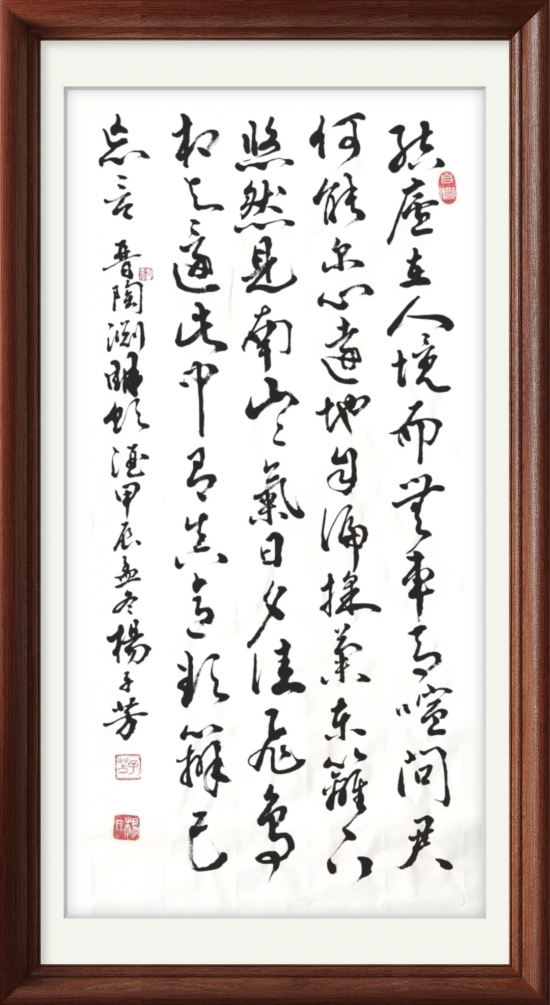 結廬在人境而無車馬喧問君
何能尔心遠地自偏採菊東籬下
悠然見南山々氣日夕佳飛鳥
相与還此中有真意欲辯已
忘言 晋陶渊明飲酒甲辰孟冬楊子芳
子芳